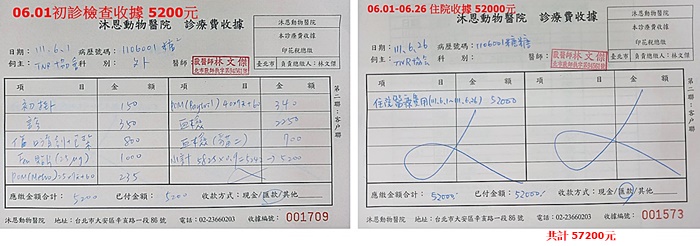 06.01初診檢查收據 5200元
沐恩動物醫院 診療費收據
沐恩動物醫院
本診療費收據
印花稅總繳
臺北市 負責總繳人：林文傑
日期：111.6.1 病歷號碼：1106001
飼主：TNR協會 科別：外 醫師：
獸醫師林文傑
項目 金額 項目 金額
初掛 150 340
350 血檢 2250
800 血檢 700
1000 小計 5200
235
應繳金額合計：5200 已付金額：5200 收款方式：現金/匯款/其他
第二聯：客戶聯
沐恩動物醫院 地址：台北市大安區辛亥路一段86號 電話：02-23660203 收據編號：001709
06.01-06.26 住院收據 52000元
沐恩動物醫院 診療費收據
沐恩動物醫院
本診療費收據
印花稅總繳
臺北市 負責總繳人：林文傑
日期：111.6.26 病歷號碼：1106001
飼主：TNR協會 科別： 醫師：
獸醫師林文傑
項目 金額 項目 金額
住院醫療費用(111.6.1~111.6.26) 52000
應繳金額合計：52000 已付金額：52000 收款方式：現金/匯款/其他
第二聯：客戶聯
沐恩動物醫院 地址：台北市大安區辛亥路一段86號 電話：02-23660203 收據編號：001573
共計 57200元